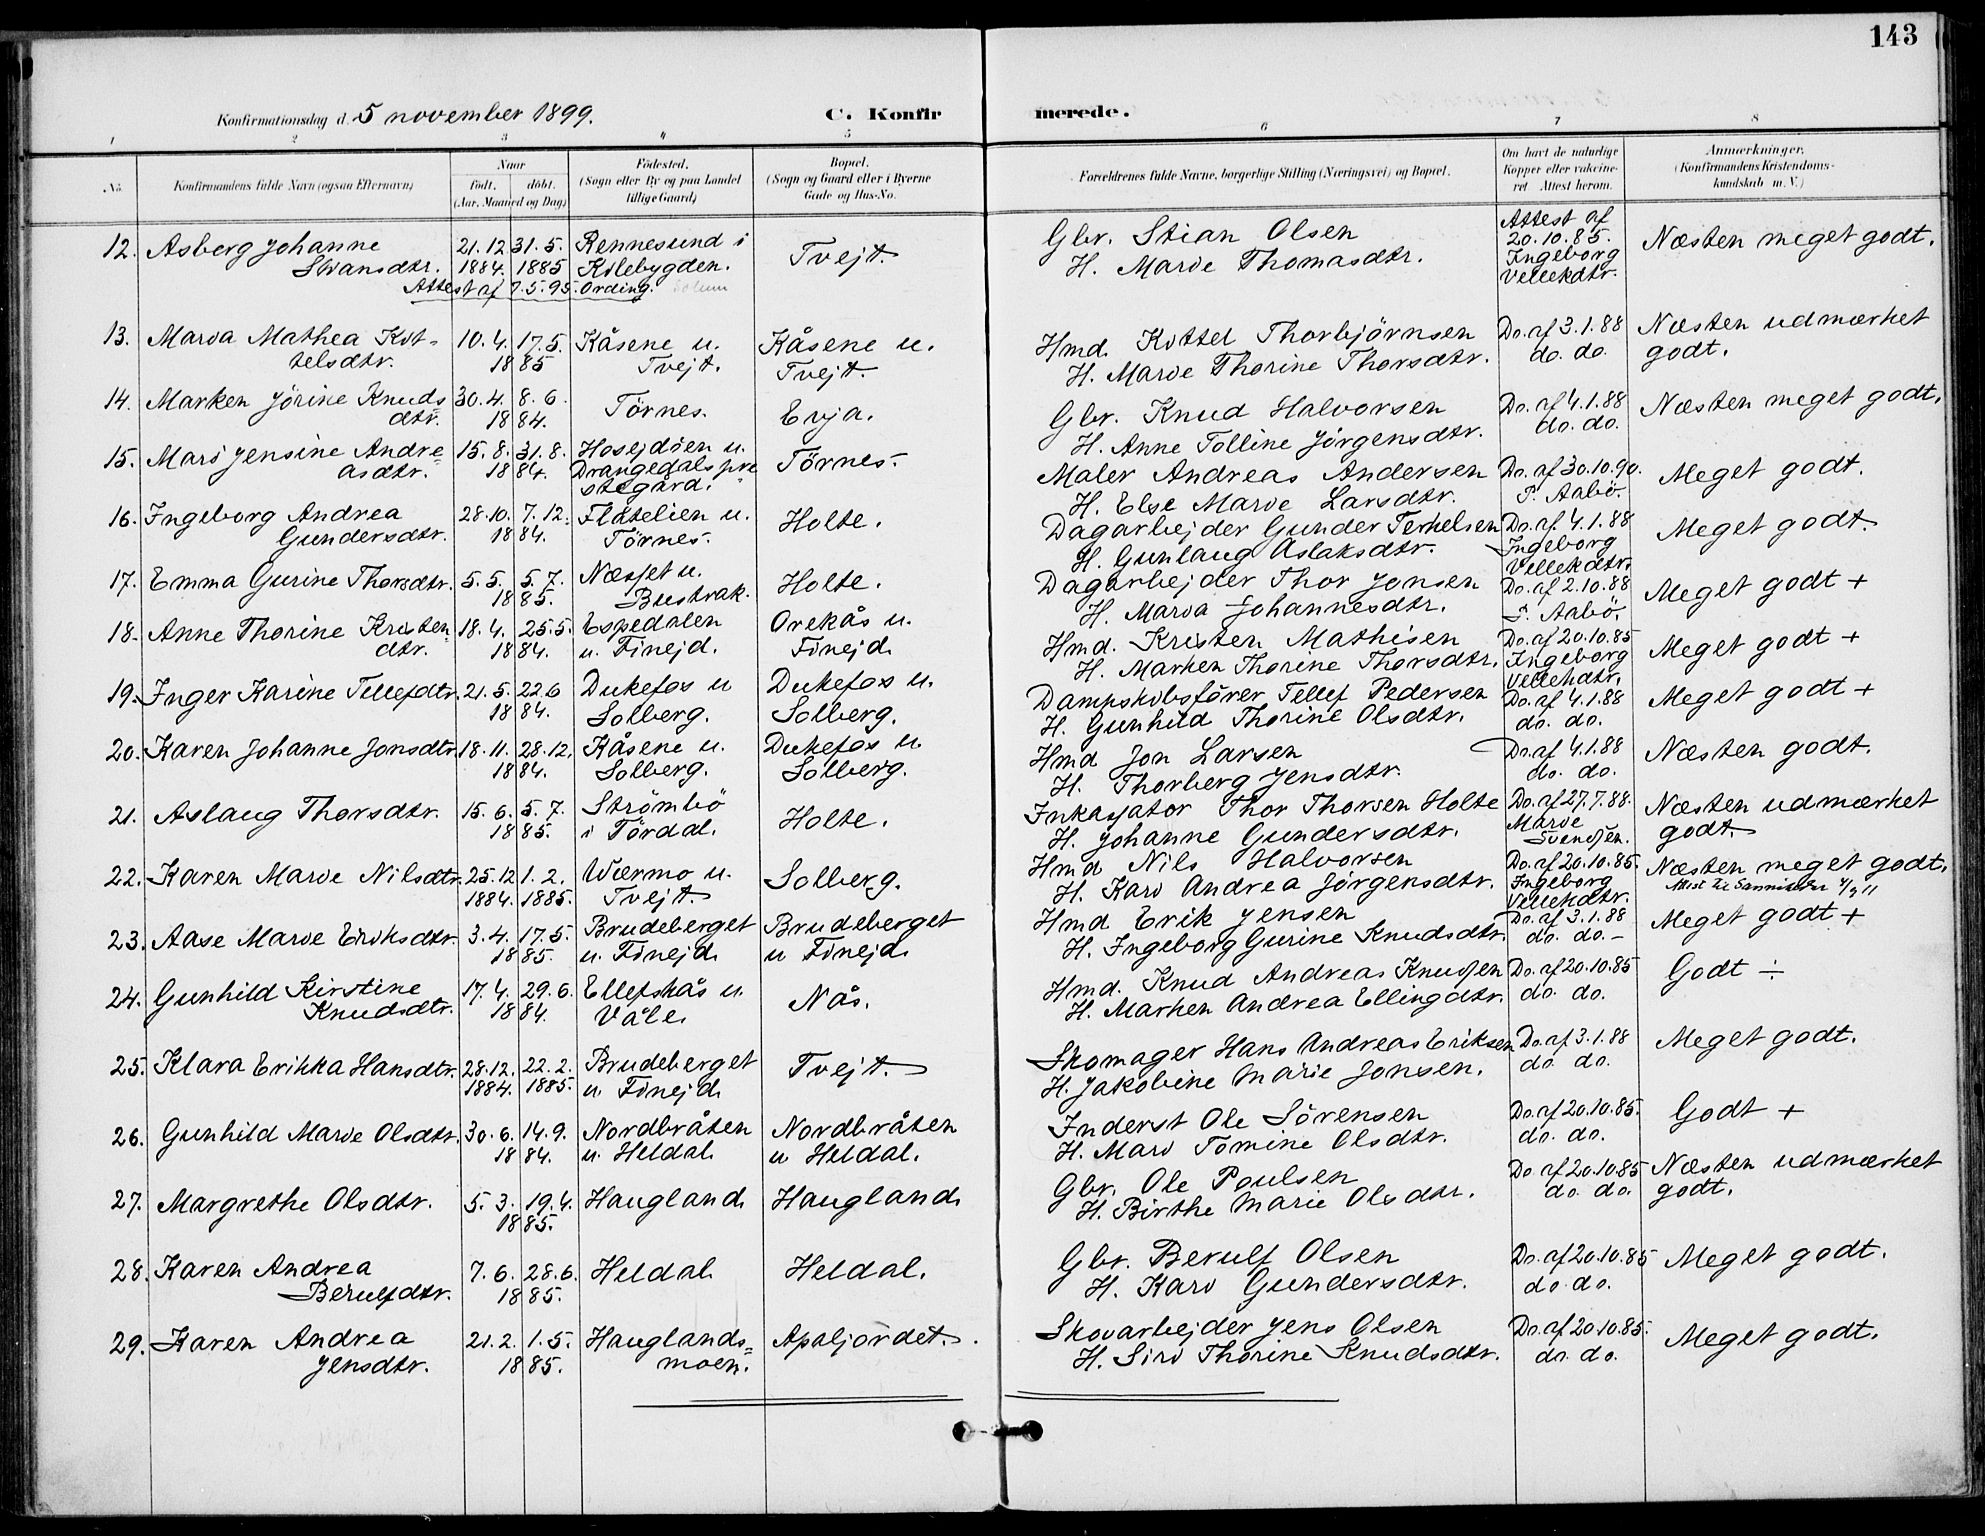 143
Konfirmationsdag d. 5 november 1899.
C. Konfirmerede.
1 2 3 4 5 6 7 8
No.
Konfirmandens fulde Navn (ogsaa Efternavn)
Naar
født. døbt.
(Aar, Maaned og Dag)
Fødested.
(Sogn eller By og paa Landet
tillige Gaard)
Bopæl.
(Sogn og Gaard eller i Byerne
Gade og Hus-No.
Forældrenes fulde Navne, borgerlige Stilling (Næringsvei) og Bopæl.
Om havt de naturlige
Kopper eller vakcine-
ret Attest herom.
Anmærkninger.
(Konfirmandens Kristendoms-
kundskab m. V.)
12. Asberg Johanne 21.12 31.5. Rennesund i Tvejt. Gbr. Stian Olsen Attest af 20.10.85. Næsten meget godt.
Stiansdtr. 1884. 1885 Kilebygden. H. Marie Thomasdtr. Ingeborg Vellekdtr.
Attest af 7.5.95. Ording. Solum
13. Maria Mathea Kit- 10.4. 17.5. Kåsene u. Kåsene u. Hmd. Kittel Thorbjörnsen Do. af 3.1.88 Næsten udmærket
telsdtr. 1885 Tvejt. Tvejt. H. Marie Thorine Thorsdtr. do. do. godt.
14. Marken Jörine Knuds 30.4. 8.6. Törnes. Evja. Gbr. Knud Halvorsen Do. af 4.1.88 Næsten meget godt.
dtr. 1884. H. Anne Tolline Jörgensdtr. do. do.
15. Mari Jensine Andre- 15.8. 31.8. Hosejdöen u. Törnes. Maler Andreas Andersen Do. af 30.10.90. Meget godt.
asdtr. 1884. Drangedals pre H. Else Marie Larsdtr. P. Aabö.
stegård.
16. Ingeborg Andrea 28.10. 7.12. Flåtelien u. Holte. Dagarbejder Gunder Terkelsen Do. af 4.1.88 Meget godt.
Gundersdtr. 1884. Törnes. H. Gunlaug Aslaksdtr. Ingeborg Vellekdtr.
17. Emma Gurine Thorsdtr. 5.5. 5.7. Næsset u. Holte. Dagarbejder Thor Jonsen Do. af 2.10.88 Meget godt +
1885. Bustrak. H. Maria Johannesdtr. P. Aabö.
18. Anne Thorine Kristen 18.4. 25.5. Espedalen Orekås u. Hmd. Kristen Mathisen Do. af 20.10.85 Meget godt +
dtr. 1884. u. Finejd. Finejd. H. Marken Thorine Thorsdtr. Ingeborg Vellekdtr.
19. Inger Karine Tellefdtr. 21.5. 22.6 Dukefos u Dukefos u. Dampskibsförer Tellef Pedersen Do. af 4.1.88 Meget godt +
1884. Solberg. Solberg. H. Gunhild Thorine Olsdtr. do. do.
20. Karen Johanne Jonsdtr. 18.11. 28.12. Kåsene u. Dukefos u. Hmd Jon Larsen Do. af 4.1.88 Næsten godt.
1884. Solberg. Solberg. H. Thorberg Jensdtr. do. do.
21. Aslaug Thorsdtr. 15.6. 5.7. Strömbö Holte. Inkassator Thor Thorsen Holte Do. af 27.7.88. Næsten udmærket
1885. i Tördal. H. Johanne Gundersdtr. Marie Svendsen. godt.
22. Karen Marie Nilsdtr. 25.12 1.2. Wærmo u. Solberg. Hmd Nils Halvorsen Do. af 20.10.85. Næsten meget godt.
1884. 1885. Tvejt. H. Kari Andrea Jörgensdtr. Ingeborg Vellekdtr. Attest til Sannikedal
23. Aase Marie Eriksdtr. 3.4. 17.5. Brudeberget Brudeberget Hmd Erik Jensen Do. af 3.1.88 Meget godt +
1885. u. Finejd. u Finejd. H. Ingeborg Gurine Knudsdtr. do. do.
24. Gunhild Kirstine 17.4. 29.6. Ellefskås u. Nås. Hmd. Knud Andreas Knudsen Do. af 20.10.85 Godt ÷
Knudsdtr. 1884. Våle. H. Marken Andrea Ellingdtr. do. do.
25. Klara Erikka Hansdtr. 28.12. 22.2. Brudeberget Tvejt. Skomager Hans Andreas Eriksen Do. af 3.1.88 Meget godt.
1884. 1885. u. Finejd. H. Jakobine Marie Jonsen. do. do.
26. Gunhild Marie Olsdtr. 30.6. 14.9. Nordbråten Nordbråten Inderst Ole Sörensen Do. af 20.10.85. Godt +
1884. u. Heldal. u Heldal. H. Mari Tomine Olsdtr. do. do.
27. Margrethe Olsdtr. 5.3. 19.4. Haugland. Haugland. Gbr. Ole Poulsen Do. af 20.10.85 Næsten udmærket
1885. H. Birthe Marie Olsdtr. do. do. godt.
28. Karen Andrea 7.6. 28.6. Heldal. Heldal. Gbr. Berulf Olsen Do. af 20.10.85 Meget godt.
Berulfdtr. 1885. H. Kari Gundersdtr. do. do.
29. Karen Andrea 21.2. 1.5. Hauglands- Apaljordet. Skovarbejder Jens Olsen Do. af 20.10.85. Meget godt.
Jensdtr. 1885. moen. H. Siri Thorine Knudsdtr. do. do.